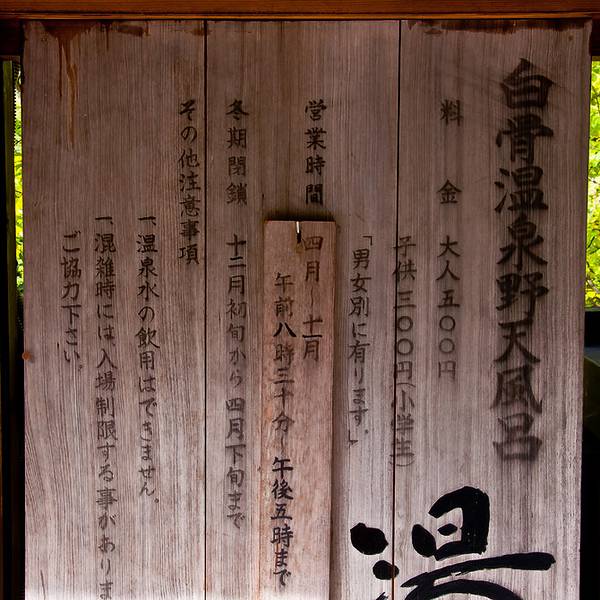 白骨温泉野天風呂
料金 大人五〇〇円
子供三〇〇円(小学生)
「男女別に有ります。」
営業時間 四月〜十一月
午前八時三十分〜午後五時まで
冬期閉鎖 十二月初旬から四月下旬まで
その他注意事項
一温泉水の飲用はできません。
一混雑時には、入場制限する事がありま
ご協力下さい。
湯